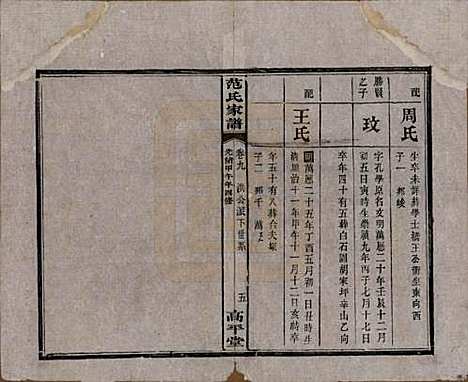 配
周氏
生卒未詳葬學士橋王公衝坐東向西
子一 邦峻
勝賢之子
玟
字孔學原名文明萬曆二十年壬辰十二月
初五日寅時生崇禎九年丙子七月十七日
卒年四十有五葬白石園胡家坪辛山乙向
配
王氏
萬曆二十五年丁酉五月初一日丑時生
順治十一年甲午十一月十二日亥時卒
年五十有八葬合夫塚
子二 邦千 萬
范氏家譜
卷九 洪公派下世系
光緒甲午年四修
五
高平堂